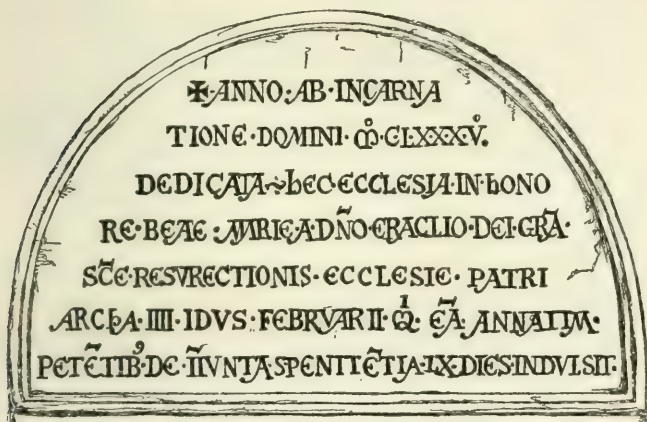 ✠·ANNO·AB·INCARNA
TIONE·DOMINI·M̊·CLXXXV̊.
DEDICATA~hEC·ECCLESIA·IN·hONO
RE·BEATE:MARIE·A·DÑO·ERACLIO·DEI·GRA̅·
SC̅E·RESVRECTIONIS·ECCLESIE·PATRI
ARChA·IIII·IDVS·FEBRVARII·Qͥ·EA̅·ANNATIM·
PETE̅TIBꝰ·DE·II̅VNTA·SPENITE̅TIA·LX·DIES·INDVLSIT·